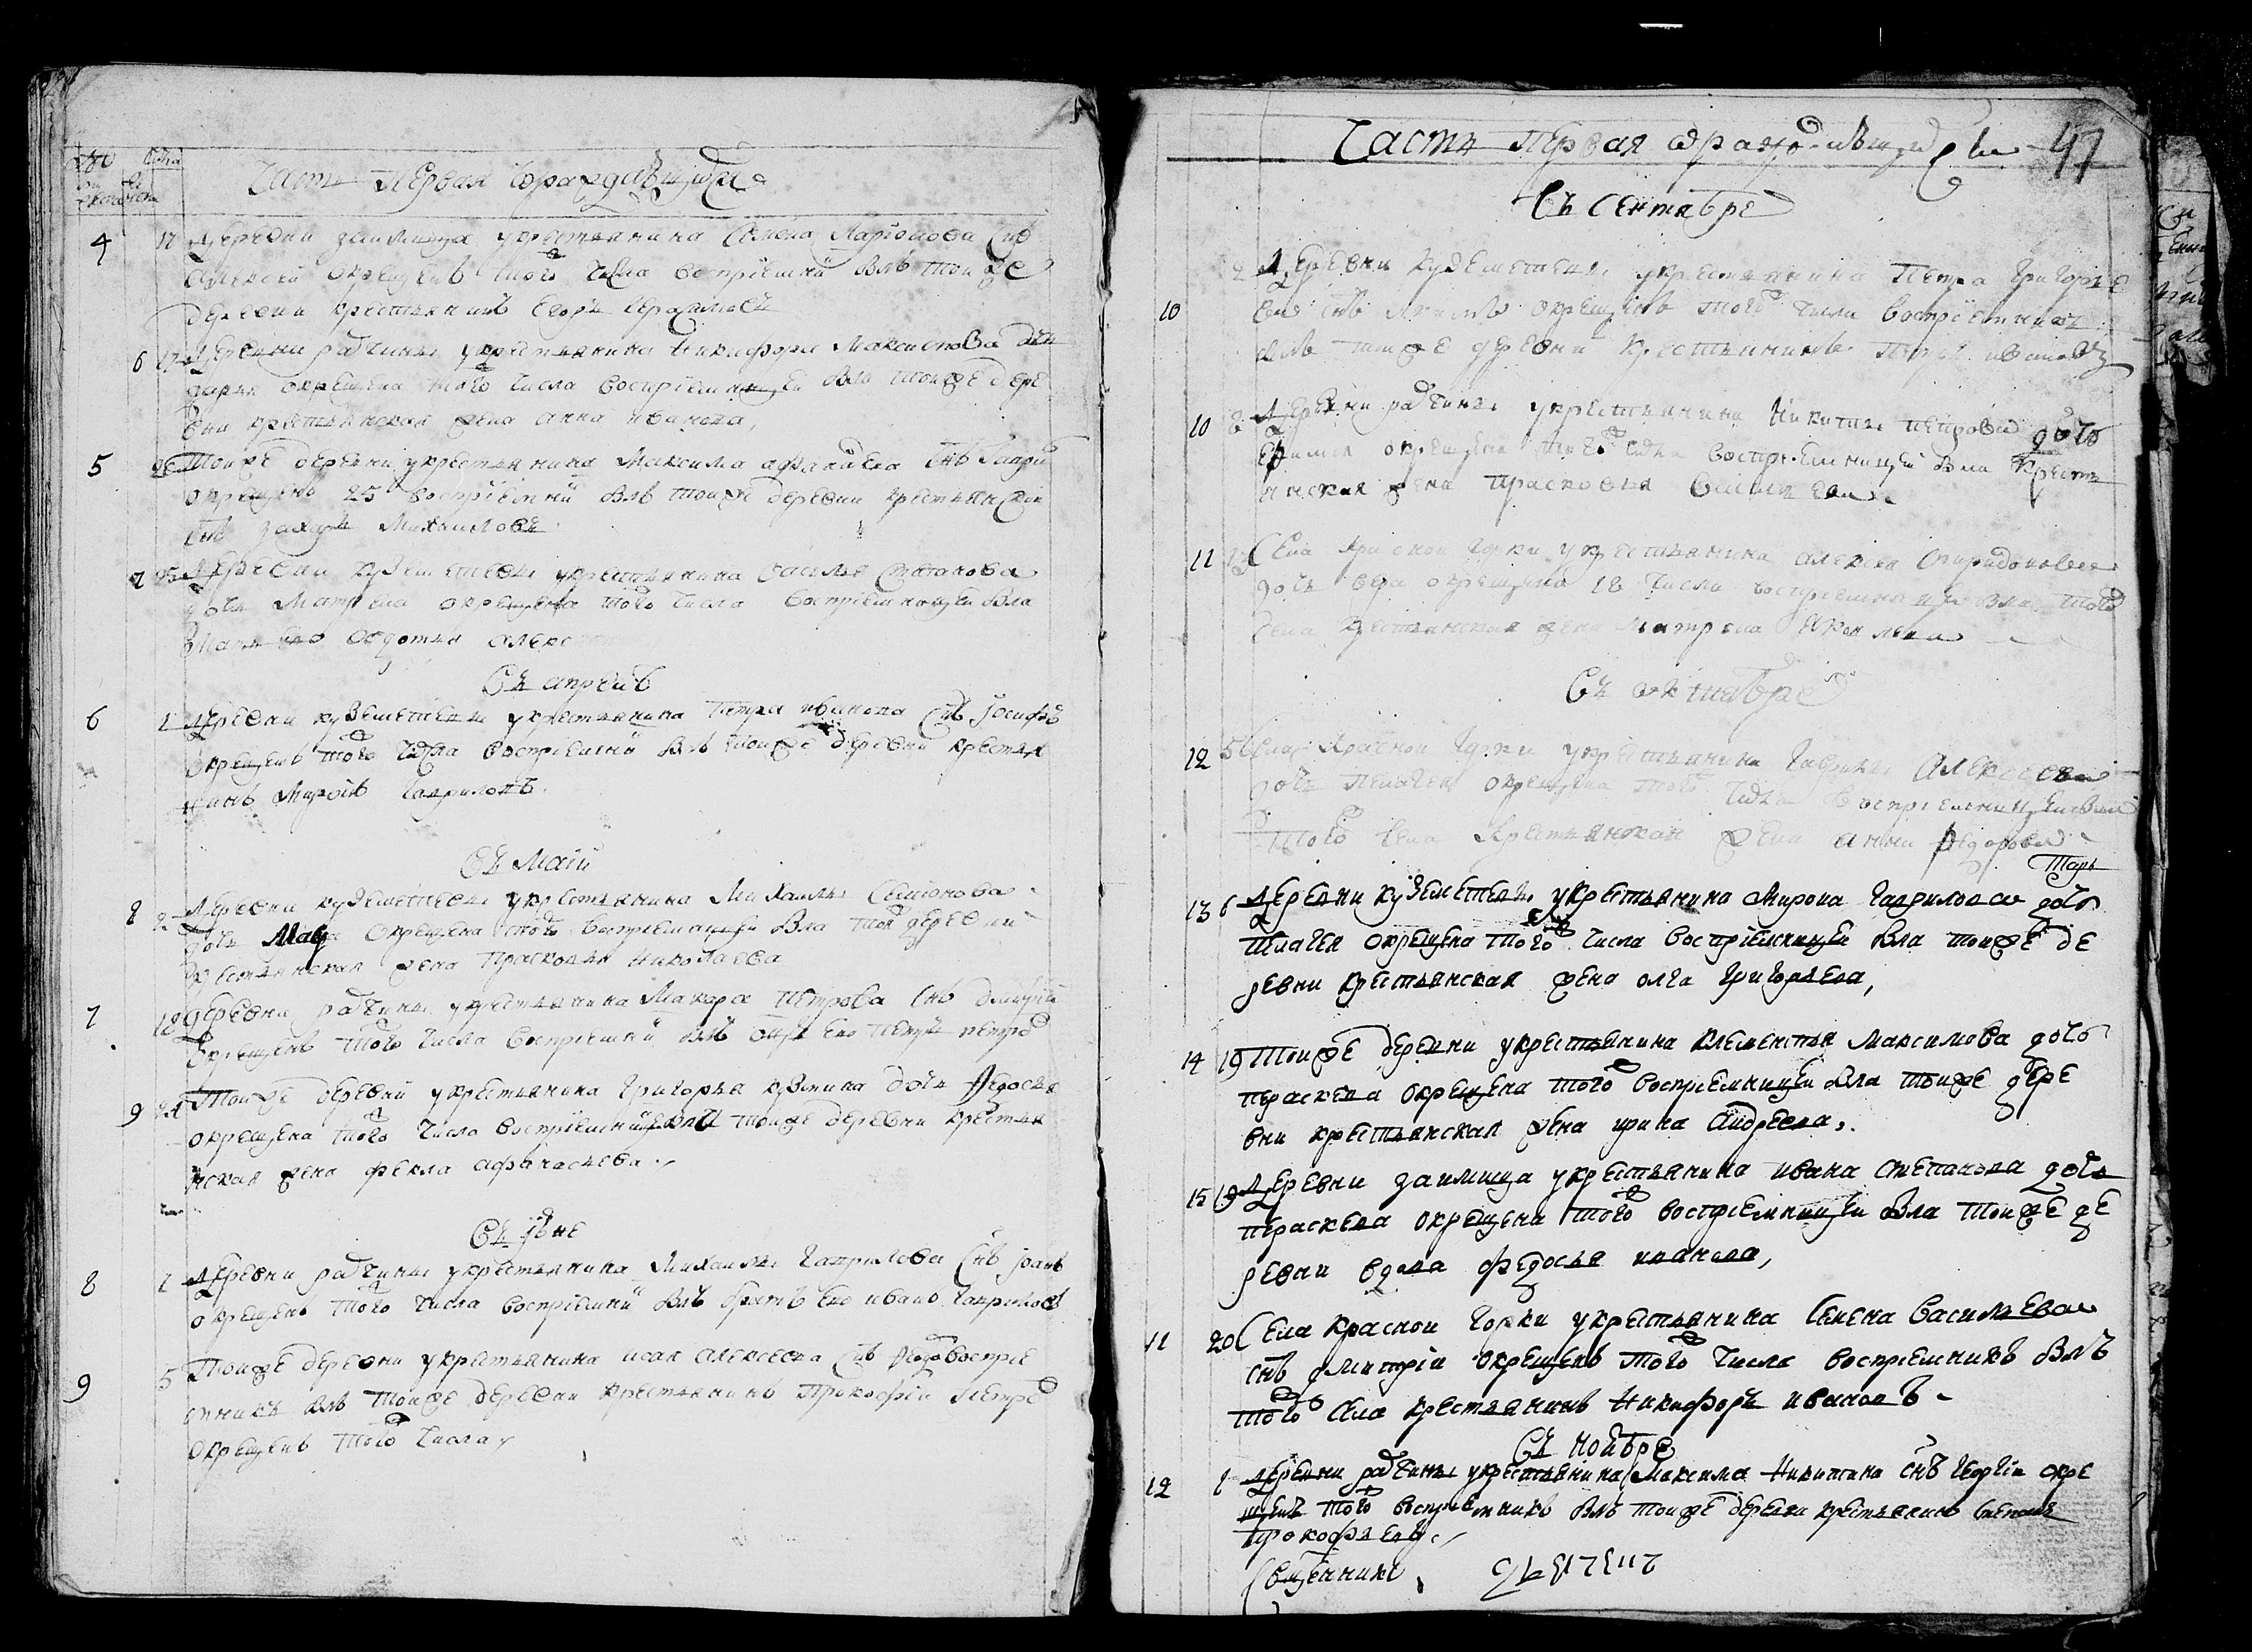 Часть первая ѡраждающихся
4 17 Деревни заимища укрестьянина Семена Ларионова снъ
Алексей окрещенъ того числа воспрiемни былъ тоиже
деревни крестьянинъ Егоръ Герасимовъ
6 17 Деревни радчины укрестьянина Никифора Максимова дочь
дарья окрещена того числа воспрiемницеи была тоиже дере
вни крестьянская жена анна иванова,
5 Тоиже деревни укрестьянина Максима снъ
окрещенъ 25 воспрiемни былъ тоиже деревни крестьянскои
снъ захаръ Михаиловъ
7 25 Деревни куземетевы укрестьянина василья Степанова
дочь Матрена окрещена того числа воспрiемницеи была
Авдотья
Въ апрелѣ
6 1 Деревни куземетевы укрестьянина Петра иванова снъ Iосифъ
окрещенъ того числа воспрiемни былъ тоиже деревни крестья
нинъ Миронъ Гавриловъ.
Въ Маiи
8 2 Деревни куземетевы укрестьянина Михаилы Семiонова
дочь Мавра окрещена того воспрiемницеи была той деревни
крестьянская жена Прасковья Николаева
7 18 Деревни радчины укрестьянина Макара Петрова снъ дмитрiи
окрещенъ того числа воспрiемни былъ Петръ петро
9 24 Тоиже деревни укрестьянина Григорья кузмина дочь Федосья
окрещена того числа воспрiемницеи была тоиже деревни крестья
нская жена фекла афанасьева.
Въ Iюне
8 1 Деревни радчины укрестьянина Михаилы Гаврилова снъ Iоанъ
окрещенъ того числа воспрiемни былъ братъ ево иванъ Гавриловъ
9 5 Тоиже деревни укрестьянина исая алексеева снъ воспрiе
мникъ былъ тоиже деревни крестьянинъ Прокофiи Петро
окрещенъ того числа
Часть первая ѡраждающихся 47
Въ сентябре
10 2 Деревни куземетевы укрестьянина Петра Григорье
ва снъ окрещенъ того числа воспрiемникъ
былъ тоиже деревни крестьянинъ
10 8 Деревни радчины укрестьянина Никиты петрова дочь
окрещена того числа воспрiемницеи была крестья
нская жена Прасковья
11 13 Села Красной Горки укрестьянина алексея Спиридонова
дочь вера окрещена 18 числа воспрiемницеи была того
села крестьянская жена матрена
Въ октябре
12 5 Села Красной Горки укрестьянина Гаврилы Алексеева
дочь Пелагея окрещена того числа воспрiемницеи была
того села Крестьянская жена анна федорова
13 6 Деревни куземетевы укрестьянина Мирона Гаврилова дочь
пелагея окрещена того числа воспрiемницеи была тоиже де
ревни крестьянская жена олга григорьева,
14 19 Тоиже деревни укрестьянина клементья Максимова дочь
пераскева окрещена того воспрiемницеи была тоиже дере
вни крестьянская жена ирина андреева,.
15 19 Деревни заимища укрестьянина ивана степанова дочь
пераскева окрещена того воспрiемницеи была тоиже де
ревни вдова федосья иванова,
11 20 Села красной горки укрестьянина Семена васильева
снъ дмитрiи окрещенъ того числа воспрiемникъ былъ
того села крестьянинъ Никифоръ ивановъ
Въ ноябре
12 1 Деревни радчины укрестьянина Максима Никитина снъ георгiи окре
щенъ того воспрiемникъ былъ тоиже деревни крестьянинъ степанъ
прокофьевъ.
Священникъ